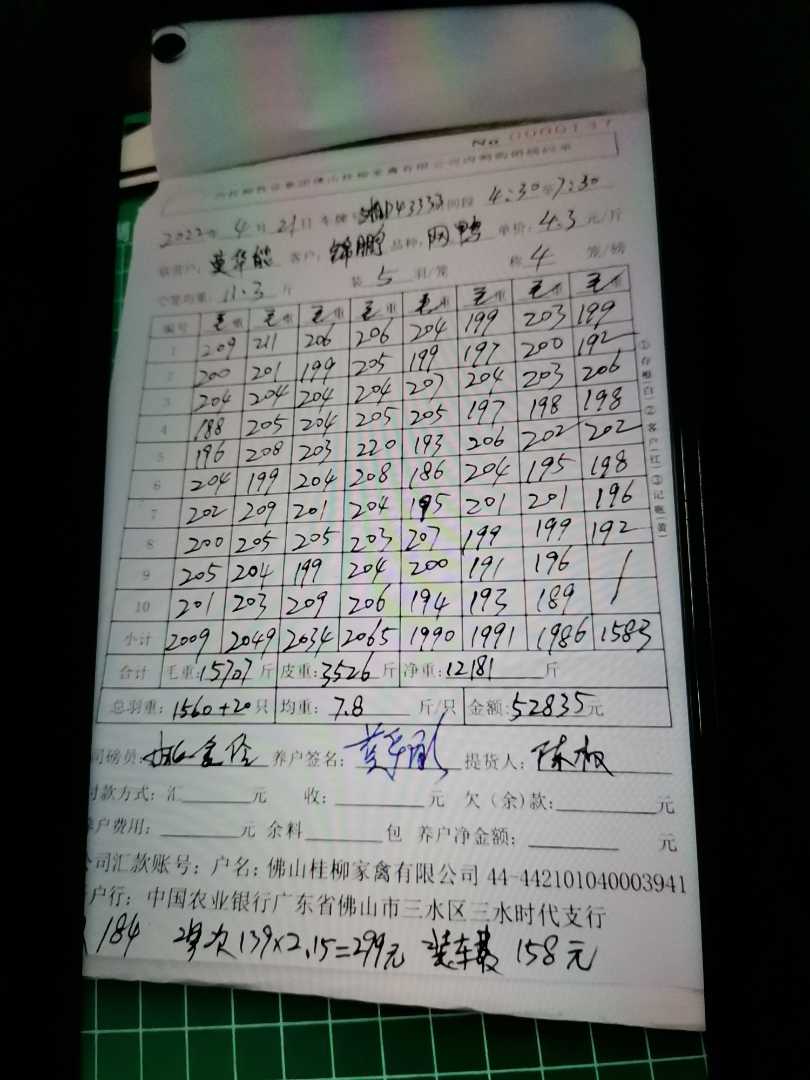 No 0000137
2022年 4月 21日 车牌: 湘D43333 时段 4:30至7:30
客户: 锦鹏 品种: 网鸭 单价: 4.3 元/斤
空笼均重: 11.3 斤 装 5 羽/笼 称 4 笼/磅
编号 毛重 毛重 毛重 毛重 毛重 毛重 毛重 毛重
1 209 211 206 206 204 199 203 199
2 200 201 199 205 199 197 200 192
3 204 204 204 204 207 204 203 206
4 188 205 204 205 205 197 198 198
5 196 208 203 220 193 206 202 202
6 204 199 204 208 186 204 195 198
7 202 209 201 204 195 201 201 196
8 200 205 205 203 207 199 199 192
9 205 204 199 204 200 191 196 /
10 201 203 209 206 194 193 189 /
小计 2009 2049 2034 2065 1990 1991 1986 1583
合计 毛重: 15707 斤 皮重: 3526 斤 净重: 12181 斤
总羽重: 1560+20 只 均重: 7.8 斤/只 金额: 52835 元
司磅员: 养户签名: 提货人: 陈权
付款方式: 汇 元 收: 元 欠(余)款: 元
养户费用: 元 余料 包 养户净金额: 元
公司汇款账号: 户名: 佛山桂柳家禽有限公司 44-442101040003941
开户行: 中国农业银行广东省佛山市三水区三水时代支行
184 139×2.15=299元 装车费 158元
①存根(白)②客户(红)③记账(黄)